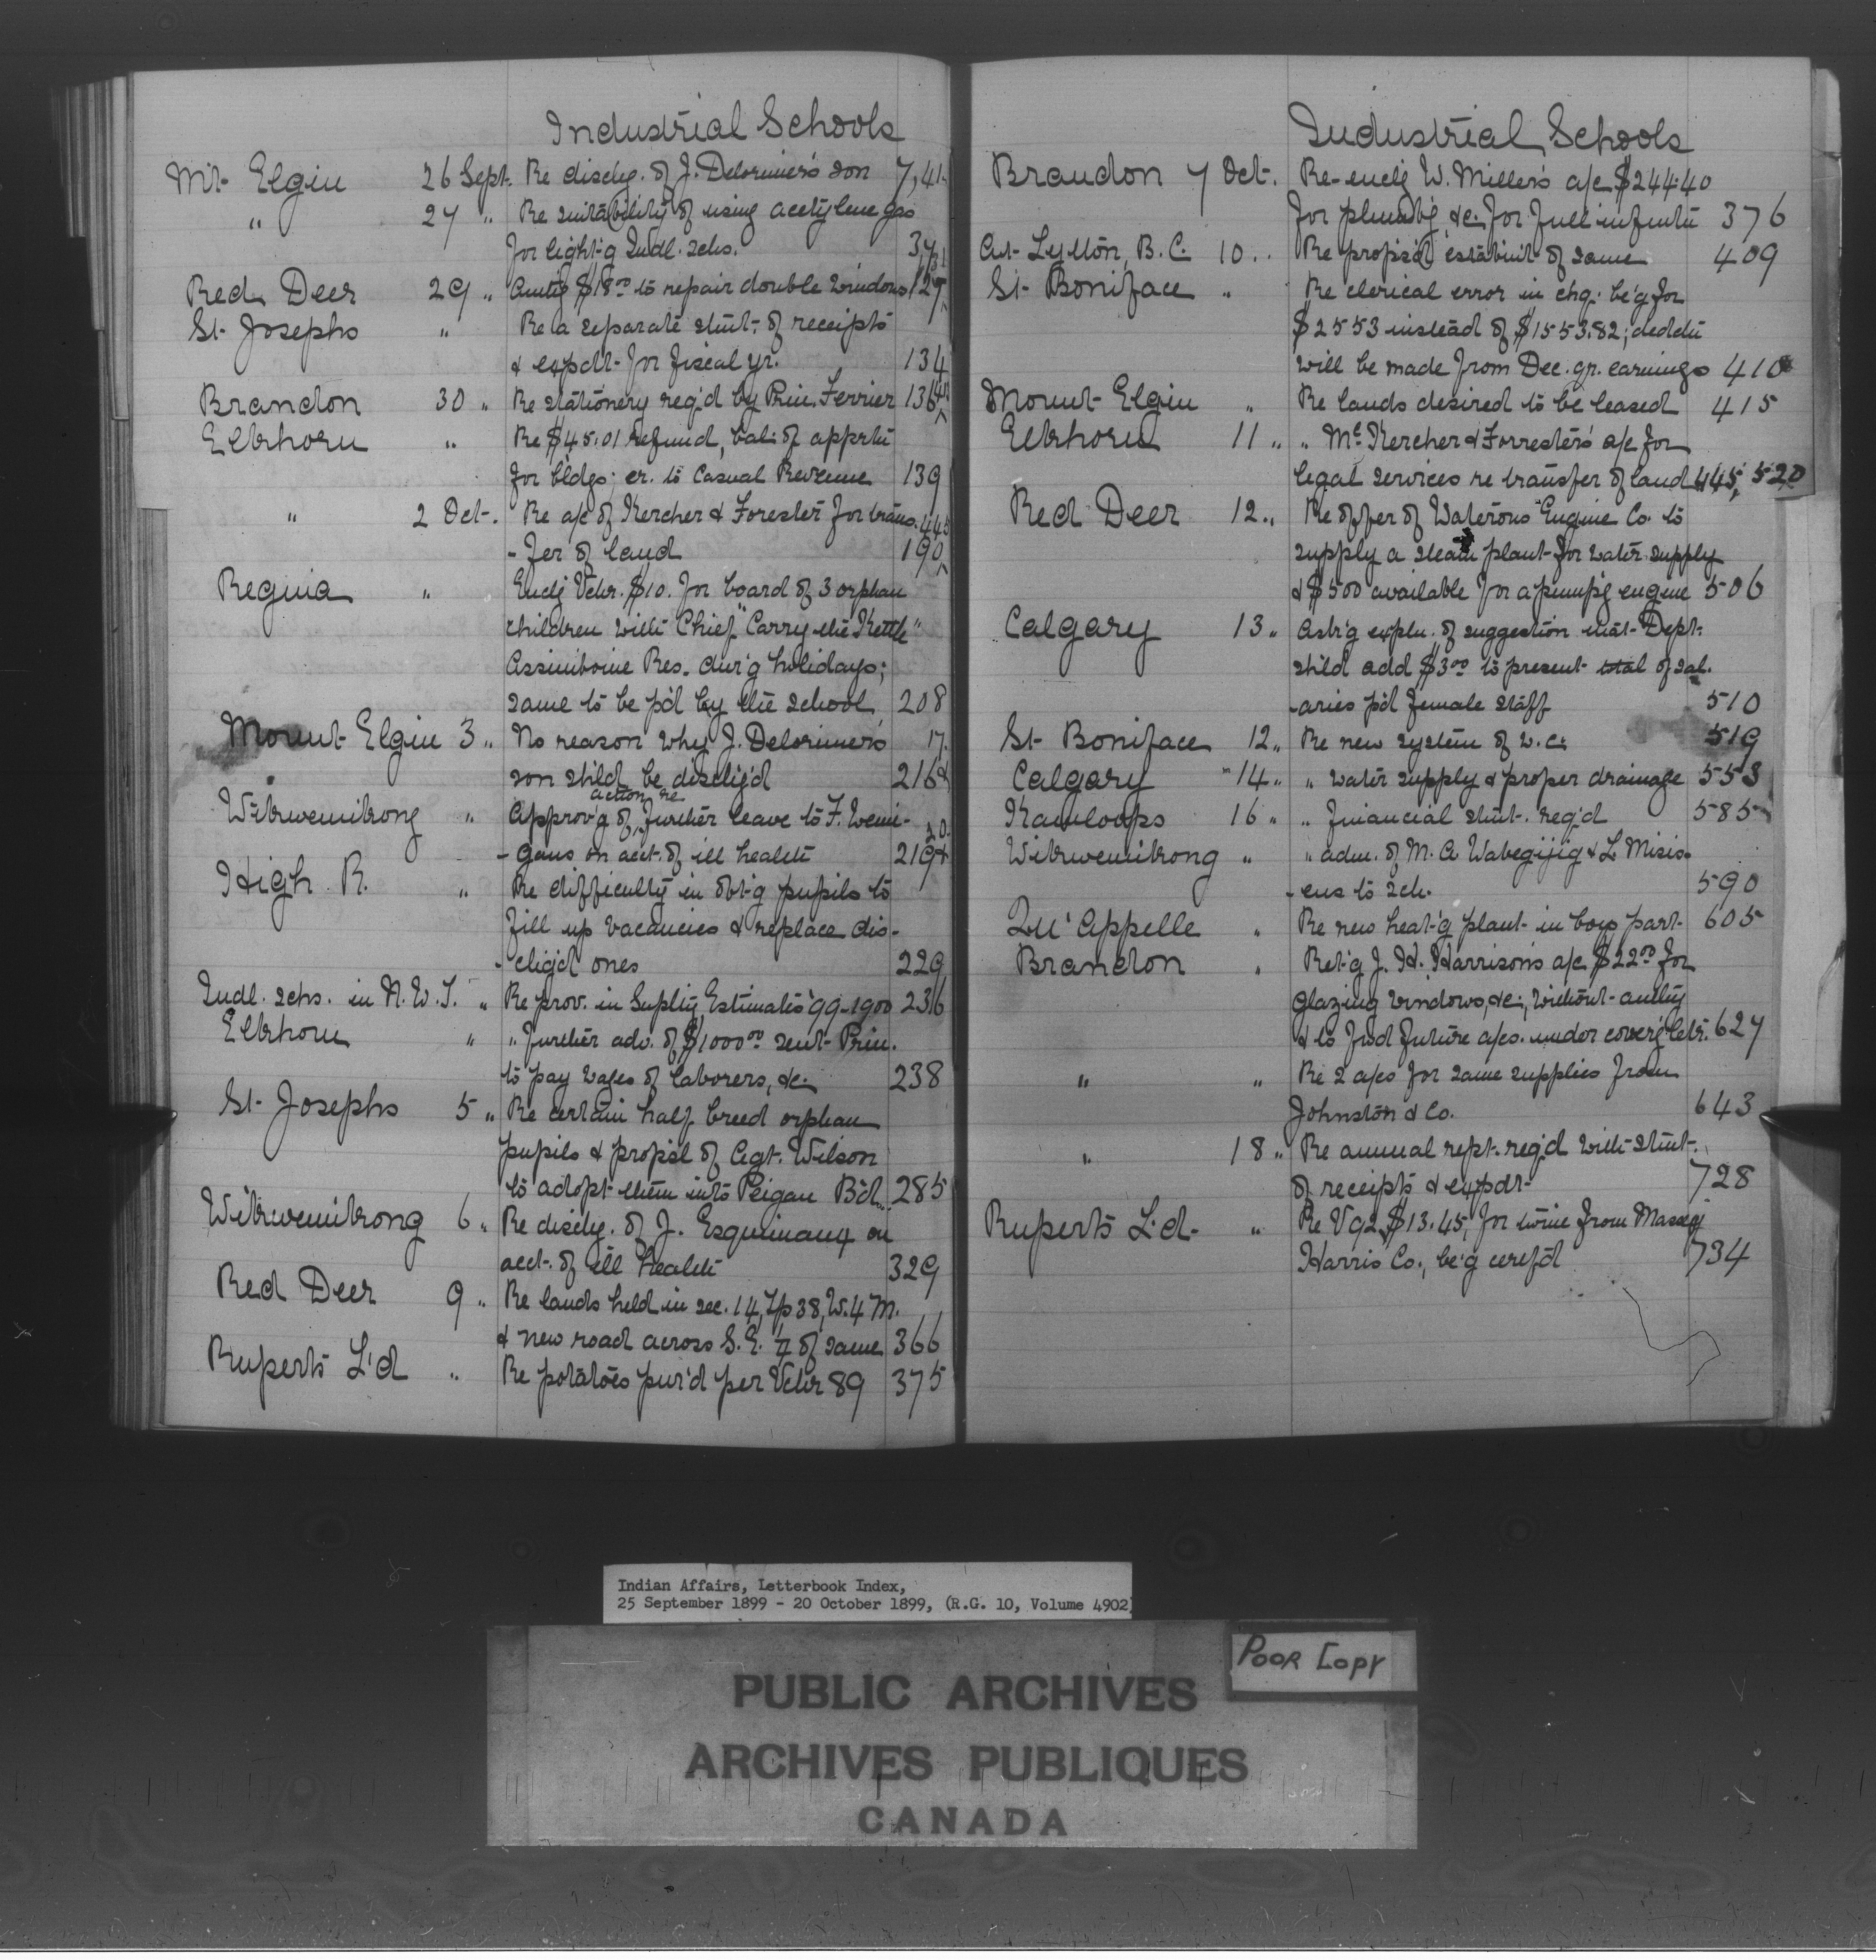 Industrial Schools
Mt. Elgin 26 Sept. Re dischg. of J. Delorimier's son 7, 41
" 27 " Re suitability of using acetylene gas
for light-g Indl. schs. 37,
Red Deer 29 " Authg $18.00 to repair double windows 127
St. Josephs " Re a separate stmt. of receipts
& expdt. for fiscal yr. 134
Brandon 30 " Re stationery req'd by Prin. Ferrier 136
Elkhorn " Re $45.01 refund, bal. of apprtn
for bldgs; cr. to Casual Revenue 139
" 2 Oct. Re a/c of Kercher & Forester for trans. 445
-fer of land 190
Regina " Enclg Vchr. $10. for board of 3 orphan
children with Chief "Carry the Kettle"
Assiniboine Res. dur'g holidays;
same to be p'd by the school 208
Mount Elgin 3 " No reason why J. Delorimier's 17
son sh'ld be dischg'd 216 &
Wikwemikong " Approv'g of action re further leave to F. Wemi- 20
-gans on acct. of ill health 219 &
High R. " Re difficulty in obt'g pupils to
fill up vacancies & replace dis-
-chg'd ones 229
Indl. schs. in N.W.T. " Re prov. in Suplty Estimates '99-1900 236
Elkhorn " " further adv. of $1000.00 sent Prin.
to pay wages of laborers, &c. 238
St. Josephs 5 " Re certain half breed orphan
pupils & prop'sl of Agt. Wilson
to adopt them into Peigan B'd. 285
Wikwemikong 6 " Re dischg. of J. Esquimaux on
acct. of ill health 329
Red Deer 9 " Re lands held in sec. 14, Tp 38, W. 4 M.
& new road across S.E. ¼ of same 366
Ruperts L'd " Re potatoes pur'd per Vchr 89 375
Industrial Schools
Brandon 7 Oct. Re-enclg W. Miller's a/c $244.40
for plumb'g &c. for full infmtn 376
At Lytton, B.C. 10 " Re propos'd establmt of same 409
St. Boniface " Re clerical error in chq. be'g for
$2553 instead of $1553.82; dedctn
will be made from Dec. qr. earnings 410
Mount Elgin " Re lands desired to be leased 415
Elkhorn 11 " " McKercher & Forrester's a/c for
legal services re transfer of land 445, 520
Red Deer 12 " Re offer of Waterous Engine Co. to
supply a steam plant for water supply
& $500 available for a pump'g engine 506
Calgary 13 " Ask'g expln. of suggestion that Dept.
sh'ld add $3.00 to present total of sal-
-aries p'd female staff 510
St. Boniface 12 " Re new system of w.c. 519
Calgary 14 " " water supply & proper drainage 553
Kamloops 16 " " financial stmt. req'd 585
Wikwemikong " " adm. of M. A. Wabegijig & L. Misis-
-ens to sch. 590
Qu'Appelle " Re new heat'g plant in boys part 605
Brandon " Ret'g J. H. Harrison's a/c $22.00 for
glazing windows, &c., without authy
& to fwd future a/cs. under cover'g letr. 627
" " Re 2 a/cs for same supplies from
Johnston & Co. 643
" 18 " Re annual rept. req'd with stmt.
of receipts & expdt. 728
Ruperts L'd " Re V92, $13.45, for twine from Massey
Harris Co., be'g cert'fd 734
Indian Affairs, Letterbook Index,
25 September 1899 - 20 October 1899, (R.G. 10, Volume 4902)
POOR COPY
PUBLIC ARCHIVES
ARCHIVES PUBLIQUES
CANADA